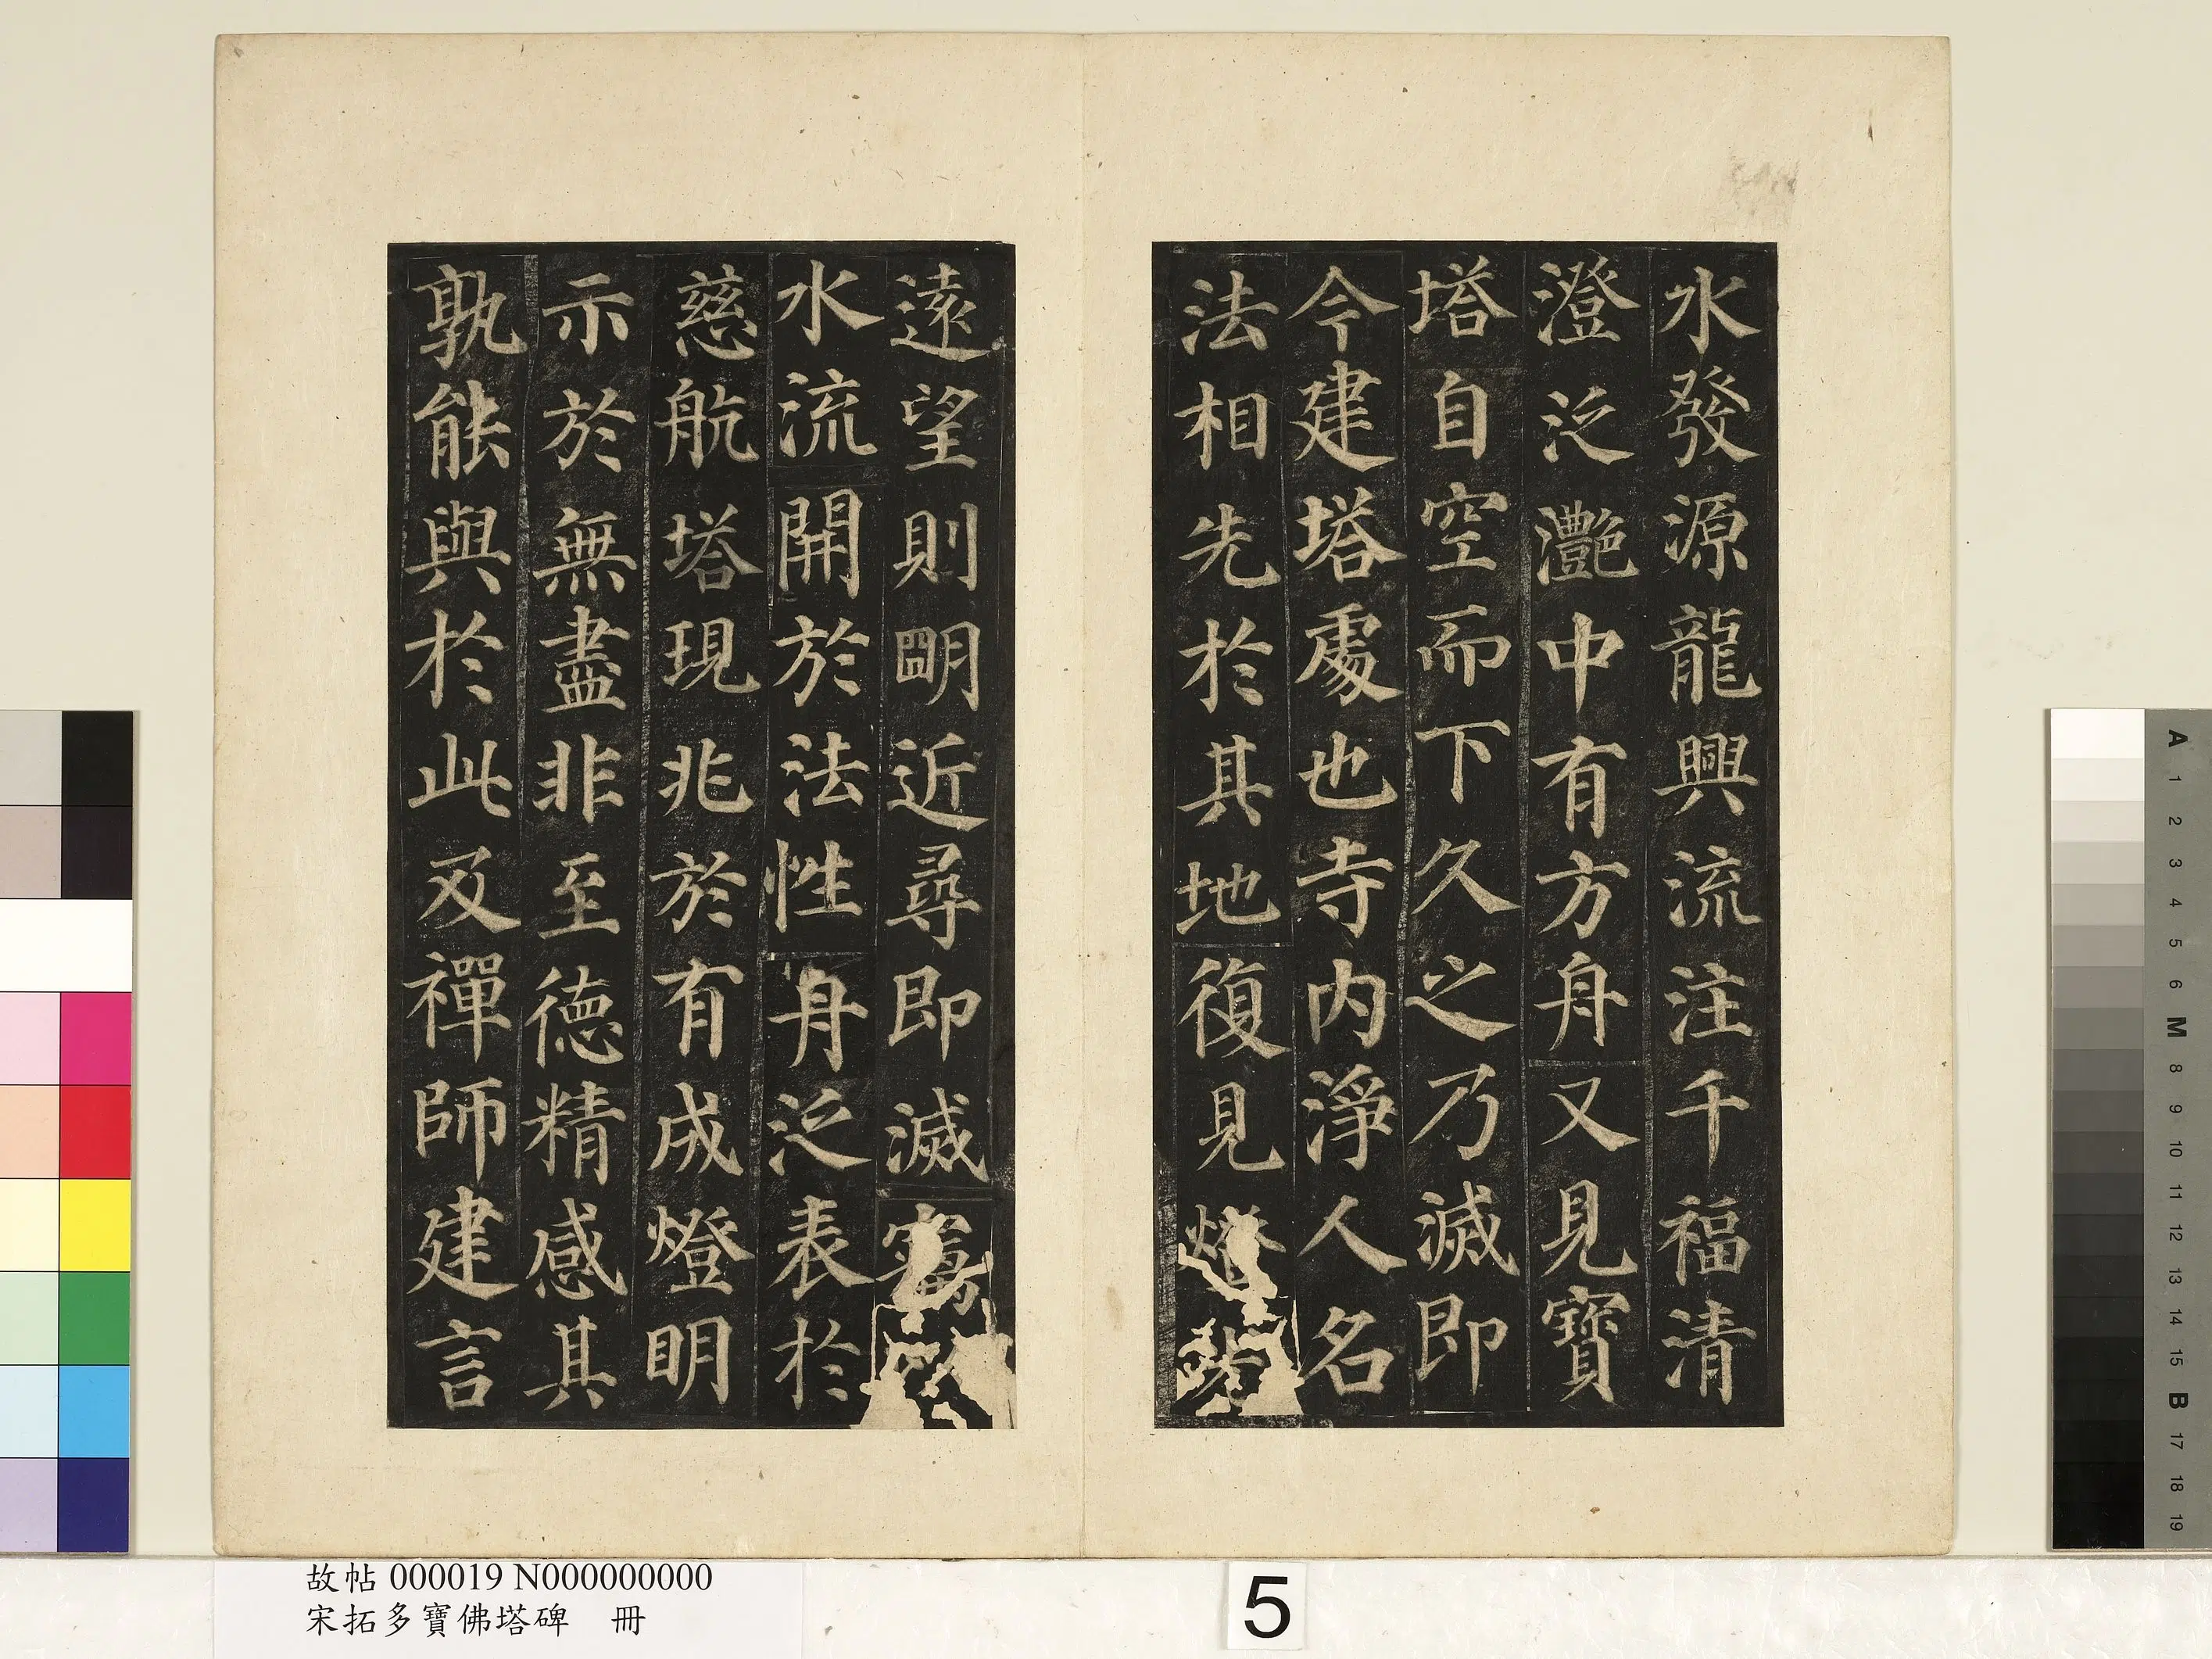 水發源龍興流注千福清
澄泛灩中有方舟又見寶
塔自空而下久之乃滅即
今建塔處也寺内淨人名
法相先於其地復見燈
遠望則朙近尋即滅竊
水流開於法性舟泛表於
慈航塔現兆於有成燈明
示於無盡非至德精感其
孰能與於此及禪師建言
故帖 000019 N000000000
宋拓多寶佛塔碑 冊
5
A
1
2
3
4
5
6
M
8
9
10
11
12
13
14
15
B
17
18
19